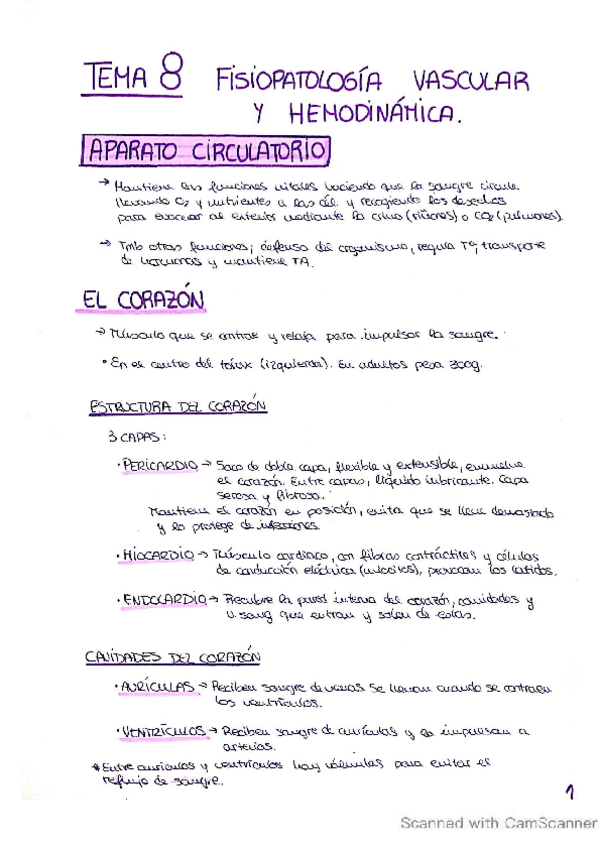 TEMA 8 FISIOPATOLOGÍA VASCULAR
Y HEMODINÁMICA.
APARATO CIRCULATORIO
→ Mantiene las funciones vitales haciendo que la sangre circule
llevando O2 y nutrientes a las cél. y recogiendo los desechos
para evacuar al exterior mediante la orina (riñones) o CO2 (pulmones).
→ Tmb otras funciones; defensa del organismo, regula Tª, transporte
de hormonas y mantiene TA.
EL CORAZÓN
→ Músculo que se contrae y relaja para impulsar la sangre.
• En el centro del tórax (izquierda). En adultos pesa 300g.
ESTRUCTURA DEL CORAZÓN
3 CAPAS:
• PERICARDIO → Saco de doble capa, flexible y extensible, envuelve
el corazón. Entre capas, líquido lubricante. Capa
serosa y fibrosa.
Mantiene el corazón en posición, evita que se llene demasiado
y lo protege de infecciones.
• MIOCARDIO → Músculo cardíaco, con fibras contráctiles y células
de conducción eléctrica (miocitos), provocan los latidos.
• ENDOCARDIO → Recubre la pared interna del corazón, cavidades y
v. sang que entran y salen de estas.
CAVIDADES DEL CORAZÓN
• AURÍCULAS → Reciben sangre de venas se llenan cuando se contraen
los ventrículos.
• VENTRÍCULOS → Reciben sangre de aurículas y la impulsan a
arterias.
* Entre aurículas y ventrículos hay válvulas para evitar el
reflujo de sangre.
1
Scanned with CamScanner